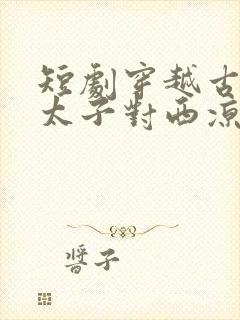 短劇穿越古
太子對西涼
醬子